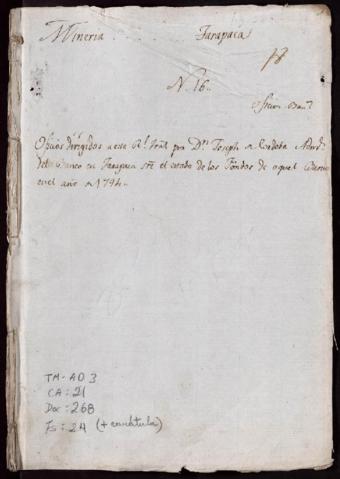 Mineria Tarapaca
N. 16.
Oficios dirigidos a este Rl. Tral. por Dn. Joseph de Cordoba Admr.
del Banco en Tarapaca sre. el estado de los Fondos de aquel
en el año de 1794.
TM-AD 3
CA: 21
Doc: 268
Fs: 24 (+ carátula)